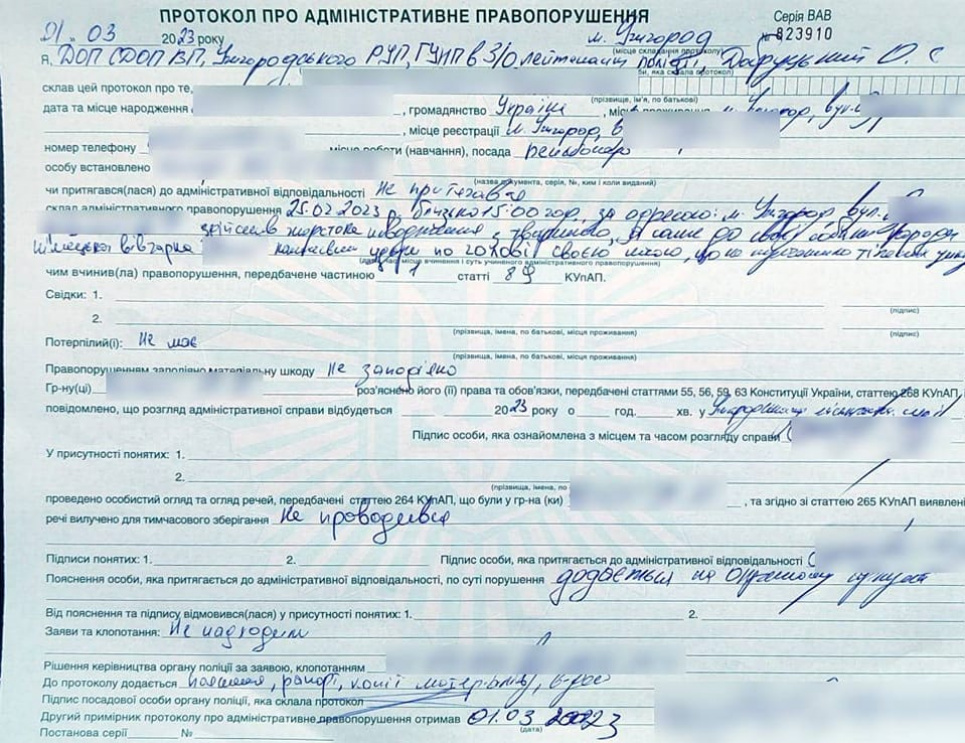 ПРОТОКОЛ ПРО АДМІНІСТРАТИВНЕ ПРАВОПОРУШЕННЯ Серія ВАВ
01. 03 2023 року м. Ужгород № 823910
(місце складання протоколу)
Я, ДОП СДОП ВП, Ужгородського РУП, ГУНП в З/О лейтенант поліції,
би, яка склала протокол)
склав цей протокол про те,
(прізвище, ім'я, по батькові)
дата та місце народження , громадянство Україні , м. Ужгород, вул.
, місце реєстрації м. Ужгород, В
номер телефону місце роботи (навчання), посада пенсіонер
особу встановлено
(назва документа, серія, №, ким і коли виданий)
чи притягався(лася) до адміністративної відповідальності Не притягався
склад адміністративного правопорушення 25.02.2023 р. близько 15:00 год. за адресою: м. Ужгород, вул.
жорстоке поводження з твариною, а саме до своєї собаки породи
німецька вівчарка удари по голові своєю ногою, що не
(дата, час, місце вчинення і суть учиненого адміністративного правопорушення)
чим вчинив(ла) правопорушення, передбачене частиною 1 статті 89 КУпАП.
Свідки: 1.
(підпис)
2.
(прізвища, імена, по батькові, місця проживання) (підпис)
Потерпілий(і): Не має
(прізвища, імена, по батькові, місця проживання)
Правопорушенням заподіяно матеріальну шкоду Не заподіяно
Гр-ну(ці) роз'яснено його (її) права та обов'язки, передбачені статтями 55, 56, 59, 63 Конституції України, статтею 268 КУпАП,
повідомлено, що розгляд адміністративної справи відбудеться 2023 року о год. хв. у
Підпис особи, яка ознайомлена з місцем та часом розгляду справи
У присутності понятих: 1.
2.
(прізвища, імена, по
проведено особистий огляд та огляд речей, передбачені статтею 264 КУпАП, що були у гр-на (ки) , та згідно зі статтею 265 КУпАП виявлені
речі вилучено для тимчасового зберігання Не проводився
Підписи понятих: 1. 2. Підпис особи, яка притягається до адміністративної відповідальності
Пояснення особи, яка притягається до адміністративної відповідальності, по суті порушення додається на окремому аркуші
Від пояснення та підпису відмовився(лася) у присутності понятих: 1. 2.
Заяви та клопотання: Не надходили
Рішення керівництва органу поліції за заявою, клопотанням
До протоколу додається пояснення, рапорт, копії матеріалів,
Підпис посадової особи органу поліції, яка склала протокол
Другий примірник протоколу про адміністративне правопорушення отримав 01.03.2023
(дата)
Постанова серії №